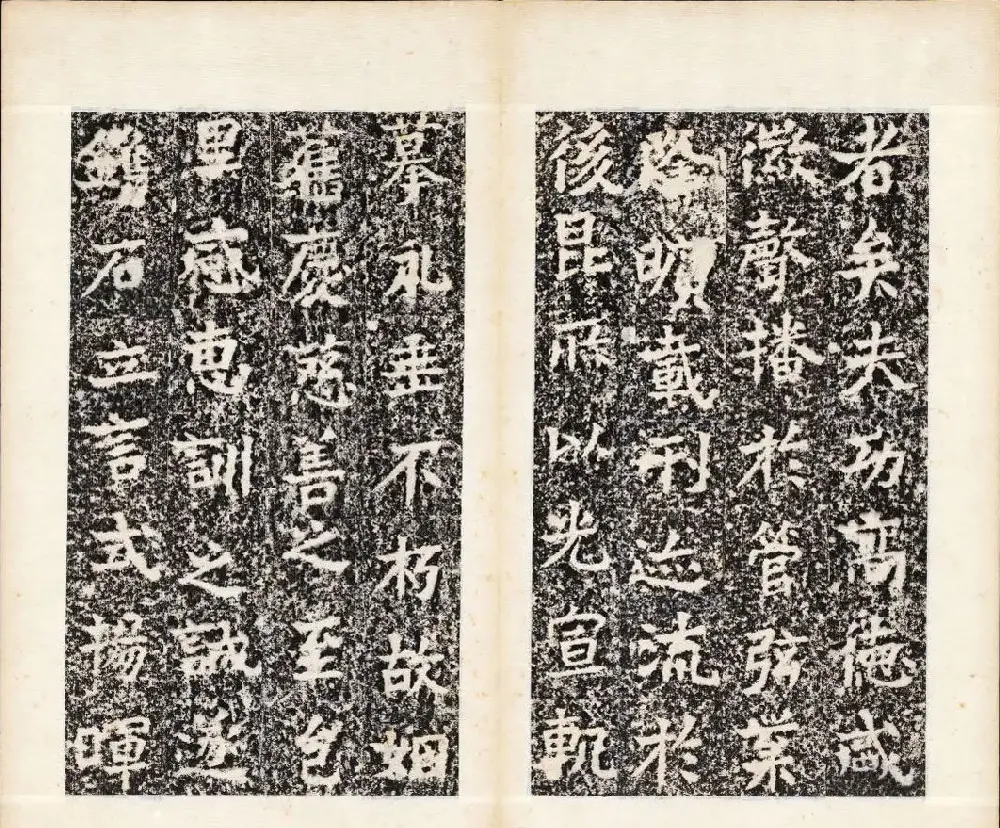 者矣夫功高德盛
徽聲播於管弦業
曠載刑迹流於
後昆所以光宣軌
摹永垂不朽故姻
舊慶慈善之至邑
里感惠訓之誠遂
鐫石立言式揚暉